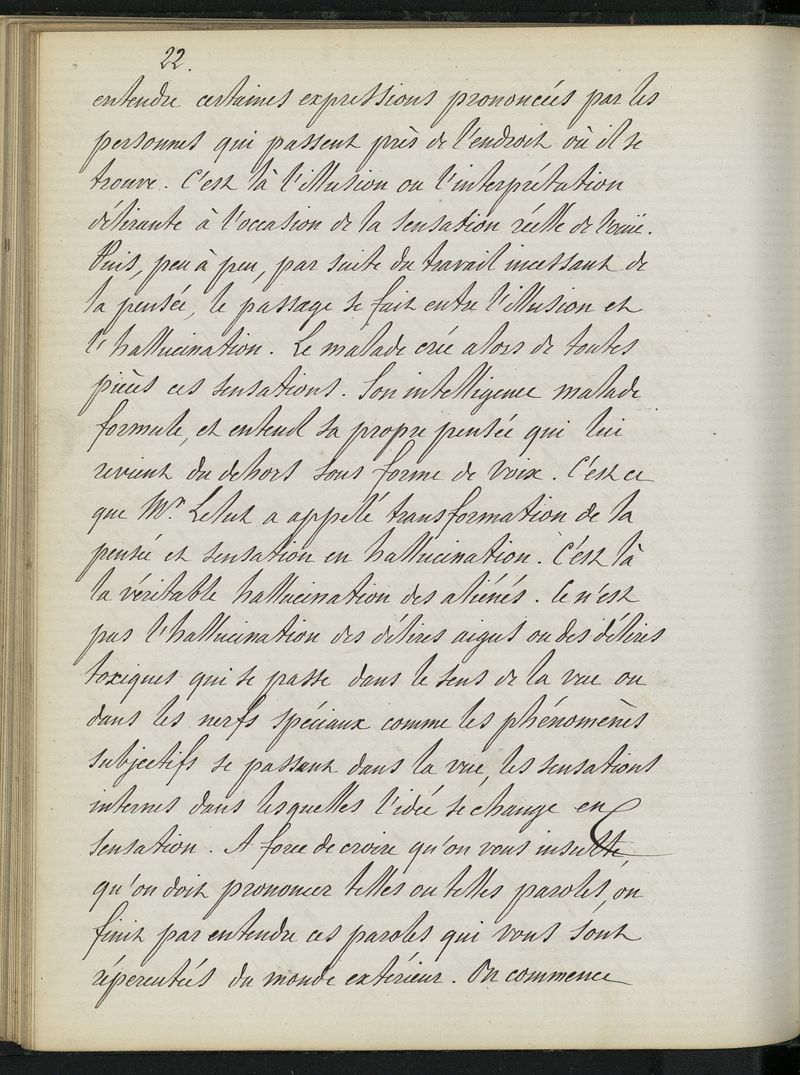 22.
entendre certaines expressions prononcées par les
personnes qui passent près de l'endroit où il se
trouve. C'est là l'illusion ou l'interprétation
délirante à l'occasion de la sensation réelle de l'ouïe.
Puis, peu à peu, par suite du travail incessant de
la pensée, le passage se fait entre l'illusion et
l'hallucination. Le malade crée alors de toutes
pièces ces sensations. Son intelligence malade
formule, et entend sa propre pensée qui lui
revient du dehors sous forme de voix. C'est ce
que Mr. Lelut a appelé transformation de la
pensée et sensation en hallucination. C'est là
la véritable hallucination des aliénés. Ce n'est
pas l'hallucination des délires aigus ou des délires
toxiques qui se passe dans le sens de la vue ou
dans les nerfs spéciaux comme les phénomènes
subjectifs se passant dans la vue, les sensations
internes dans lesquelles l'idée se change en
sensation. A force de croire qu'on vous insulte,
qu'on doit prononcer telles ou telles paroles, on
finit par entendre ces paroles qui vous sont
répercutées du monde extérieur. On commence